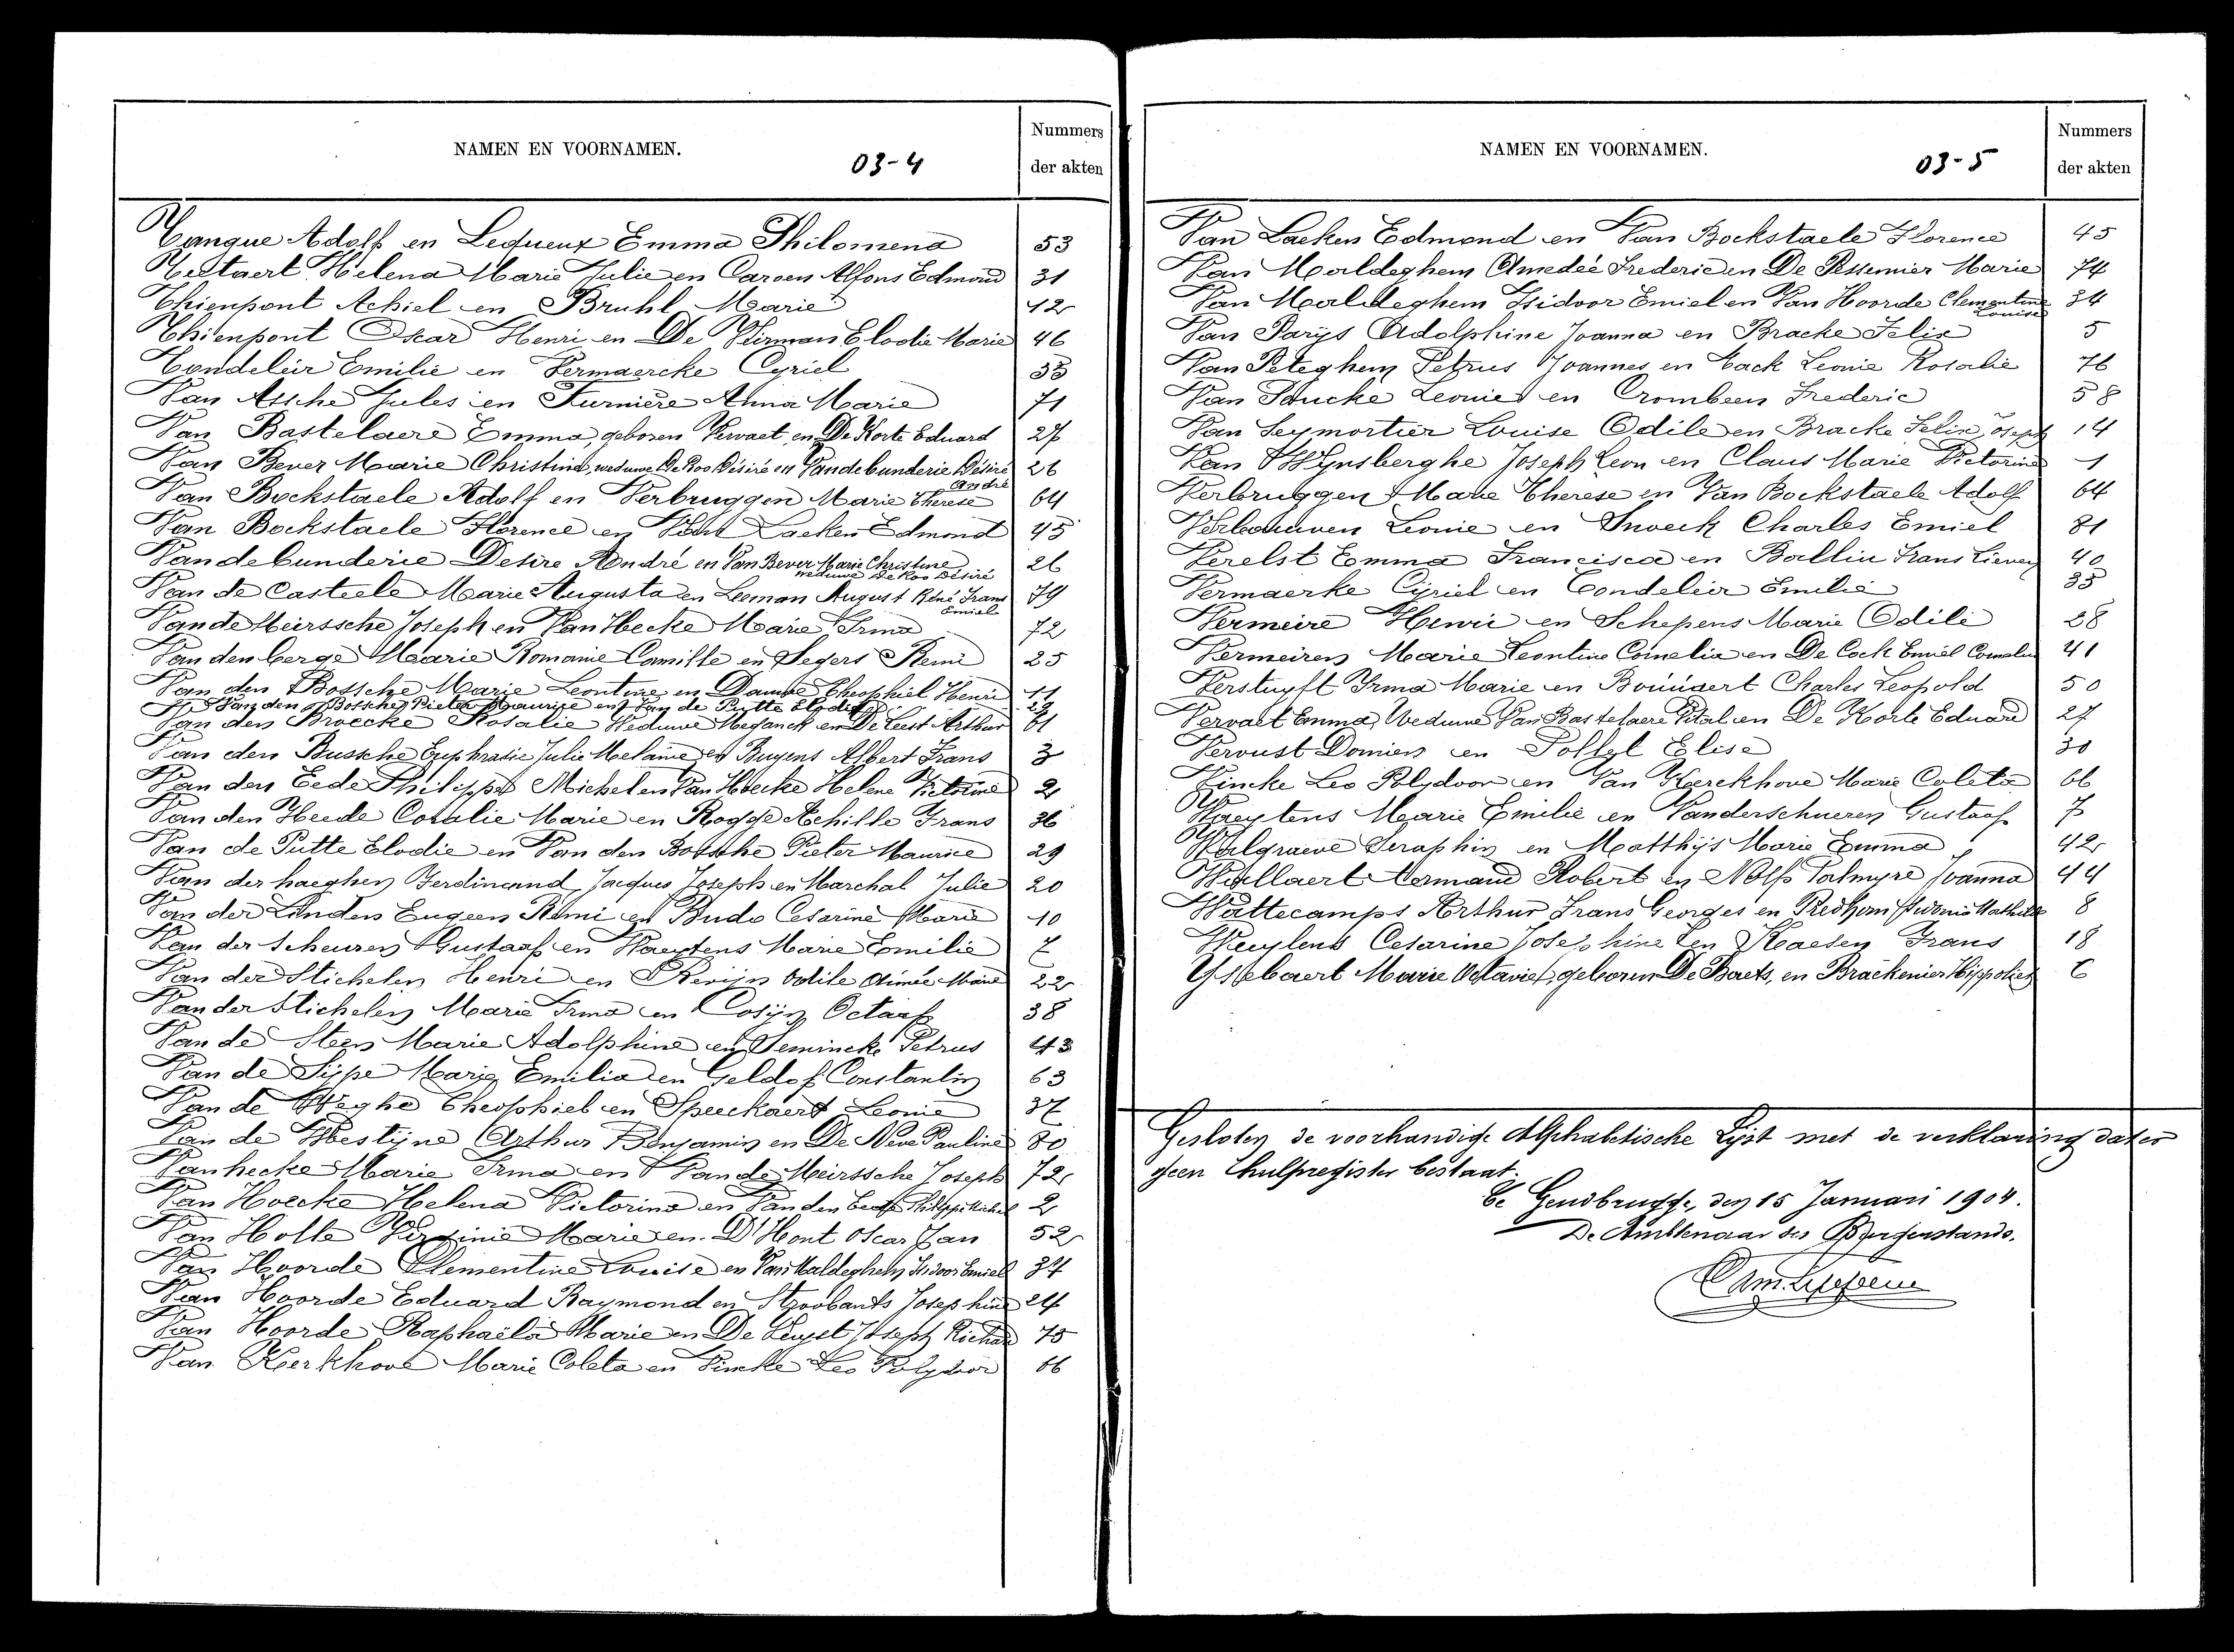 NAMEN EN VOORNAMEN.
03-4
Nummers
der akten
Tanque Adolf en Lequeux Emma Philomena 53
Testaert Helena Marie Julie en Caroen Alfons Edmond 31
Thienpont Achiel en Bruhl Marie 12
Thienpont Oscar Henri en De Vlieman Elodie Marie 46
Tondeleir Emilie en Vermaercke Cyriel 35
Van Assche Jules en Furnière Anna Marie 71
Van Bastelaere Emma, geboren Vervaet, en De Korte Eduard 27
Van Bever Marie Christina, weduwe De Roo Désiré en Vandebunderie Désiré 26
André
Van Bockstaele Adolf en Verbruggen Marie Therese 64
Van Bockstaele Florence en Van Lacken Edmond 45
Vandebunderie Desire André en Van Bever Marie Christine 26
weduwe De Roo Désiré
Van de Casteele Marie Augusta en Leeman August René Frans 79
Emiel
Van de Meirssche Joseph en Van Hecke Marie Irma 72
Van den berge Marie Romanie Camille en Segers Remi 25
Van den Bossche Marie Leontine en Dauwe Theophiel Henri 11
Van den Bossche Pieter Maurice en Van de Putte Elodie 29
Van den Broecke Rosalie Weduwe Meganck en De Leest Arthur 61
Van den Bussche Euphrasie Julie Melanie en Buyens Albert Frans 3
Van den Eede Philippe Michel en Van Hoecke Helene Victorine 2
Van den Heede Coralie Marie en Rogge Achille Frans 36
Van de Putte Elodie en Van den Bossche Pieter Maurice 29
Van der haeghen Ferdinand, Jacques Joseph en Marchal Julie 20
Van der Linden Eugeen Remi en Budo Cesarine Marie 10
Van der Scheuren Gustaaf en Waeytens Marie Emilie 7
Van der Stichelen Henri en Revijn Odile Aimée Marie 22
Van der Stichelen Marie Irma en Cosijn Octaaf 38
Van de Steen Marie Adolphine en Semincke Petrus 43
Van de Sijpe Marie Emilia en Geldof Constantin 63
Van de Weghe Theophiel en Speeckaert Leonie 37
Van de Westijne Arthur Benjamin en De Neve Pauline 80
Van hecke Marie Irma en Van de Meirssche Joseph 72
Van Hoecke Helena Victorine en Van den Eede Philippe Michel 2
Van Holle Virginie Marie en D'Hont Oscar Jan 52
Van Hoorde Clementine Louise en Van Maldeghem Isidoor Emiel 34
Van Hoorde Eduard Raymond en Stroobants Josephine 24
Van Hoorde Raphaëla Marie en De Leyst Joseph Richard 75
Van Kerkhove Marie Coleta en Vincke Leo Polydoor 66
NAMEN EN VOORNAMEN.
03-5
Nummers
der akten
Van Lacken Edmond en Van Bockstaele Florence 45
Van Maldeghem Amedée Frederic en De Pessemier Marie 74
Van Maldeghem Isidoor Emiel en Van Hoorde Clementine 34
Louise
Van Parys Adolphine Joanna en Bracke Felix 5
Van Peteghem Petrus Joannes en Tack Leonie Rosalie 76
Van Poucke Leonie en Crombeen Frederic 58
Van Seymortier Louise Odile en Bracke Felix Joseph 14
Van Wynsberghe Joseph Leon en Claus Marie Victorine 1
Verbruggen Marie Therese en Van Bockstaele Adolf 64
Verbauwen Leonie en Snoeck Charles Emiel 81
Verelst Emma Francisca en Ballin Frans Lieven 40
Vermaerke Cyriel en Tondeleir Emilie 35
Vermeire Henri en Schepens Marie Odile 28
Vermeiren Marie Leontine Cornelia en De Cock Emiel Cornelis 41
Verstuyft Irma Marie en Boungert Charles Leopold 50
Vervaet Emma, Weduwe Van Bastelaere Vital en De Korte Eduard 27
Vervust Domien en Poffyl Elise 30
Vincke Leo Polydoor en Van Kerckhove Marie Coleta 66
Waeytens Marie Emilie en Vanderschueren Gustaaf 7
Walgraeve Seraphin en Matthijs Marie Emma 42
Wallaert Armand Robert en Nolfs Palmyre Joanna 44
Wattecamps Arthur Frans Georges en Sidonie Mathilde 8
Weylens Cesarine Josephine en Kaesen Frans 18
Ysebaert Marie Octavie, geboren De Baets, en Brackenier Hippoliet 6
Gesloten de voorhandige Alphabetische Lijst met de verklaring dat er
geen hulpregister bestaat.
Te Gendbrugge, den 15 Januari 1904.
De Ambtenaar des Burgerstands.